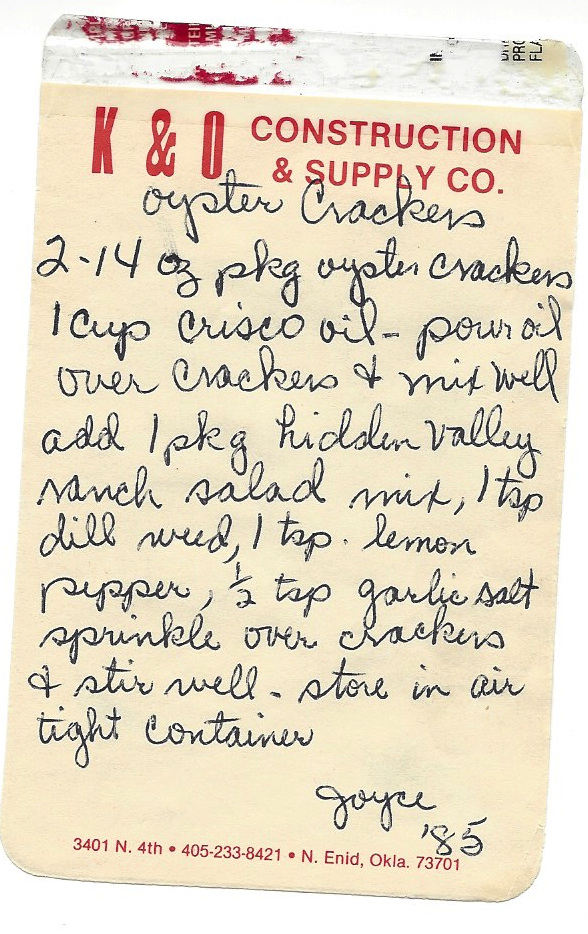 K & O CONSTRUCTION
& SUPPLY CO.
oyster Crackers
2-14 oz pkg oyster crackers
1 cup crisco oil - pour oil
over crackers & mix well
add 1 pkg hidden Valley
ranch salad mix, 1 tsp
dill weed, 1 tsp. lemon
pepper, ½ tsp garlic salt
sprinkle over crackers
& stir well - store in air
tight container
Joyce
'85
3401 N. 4th • 405-233-8421 • N. Enid, Okla. 73701